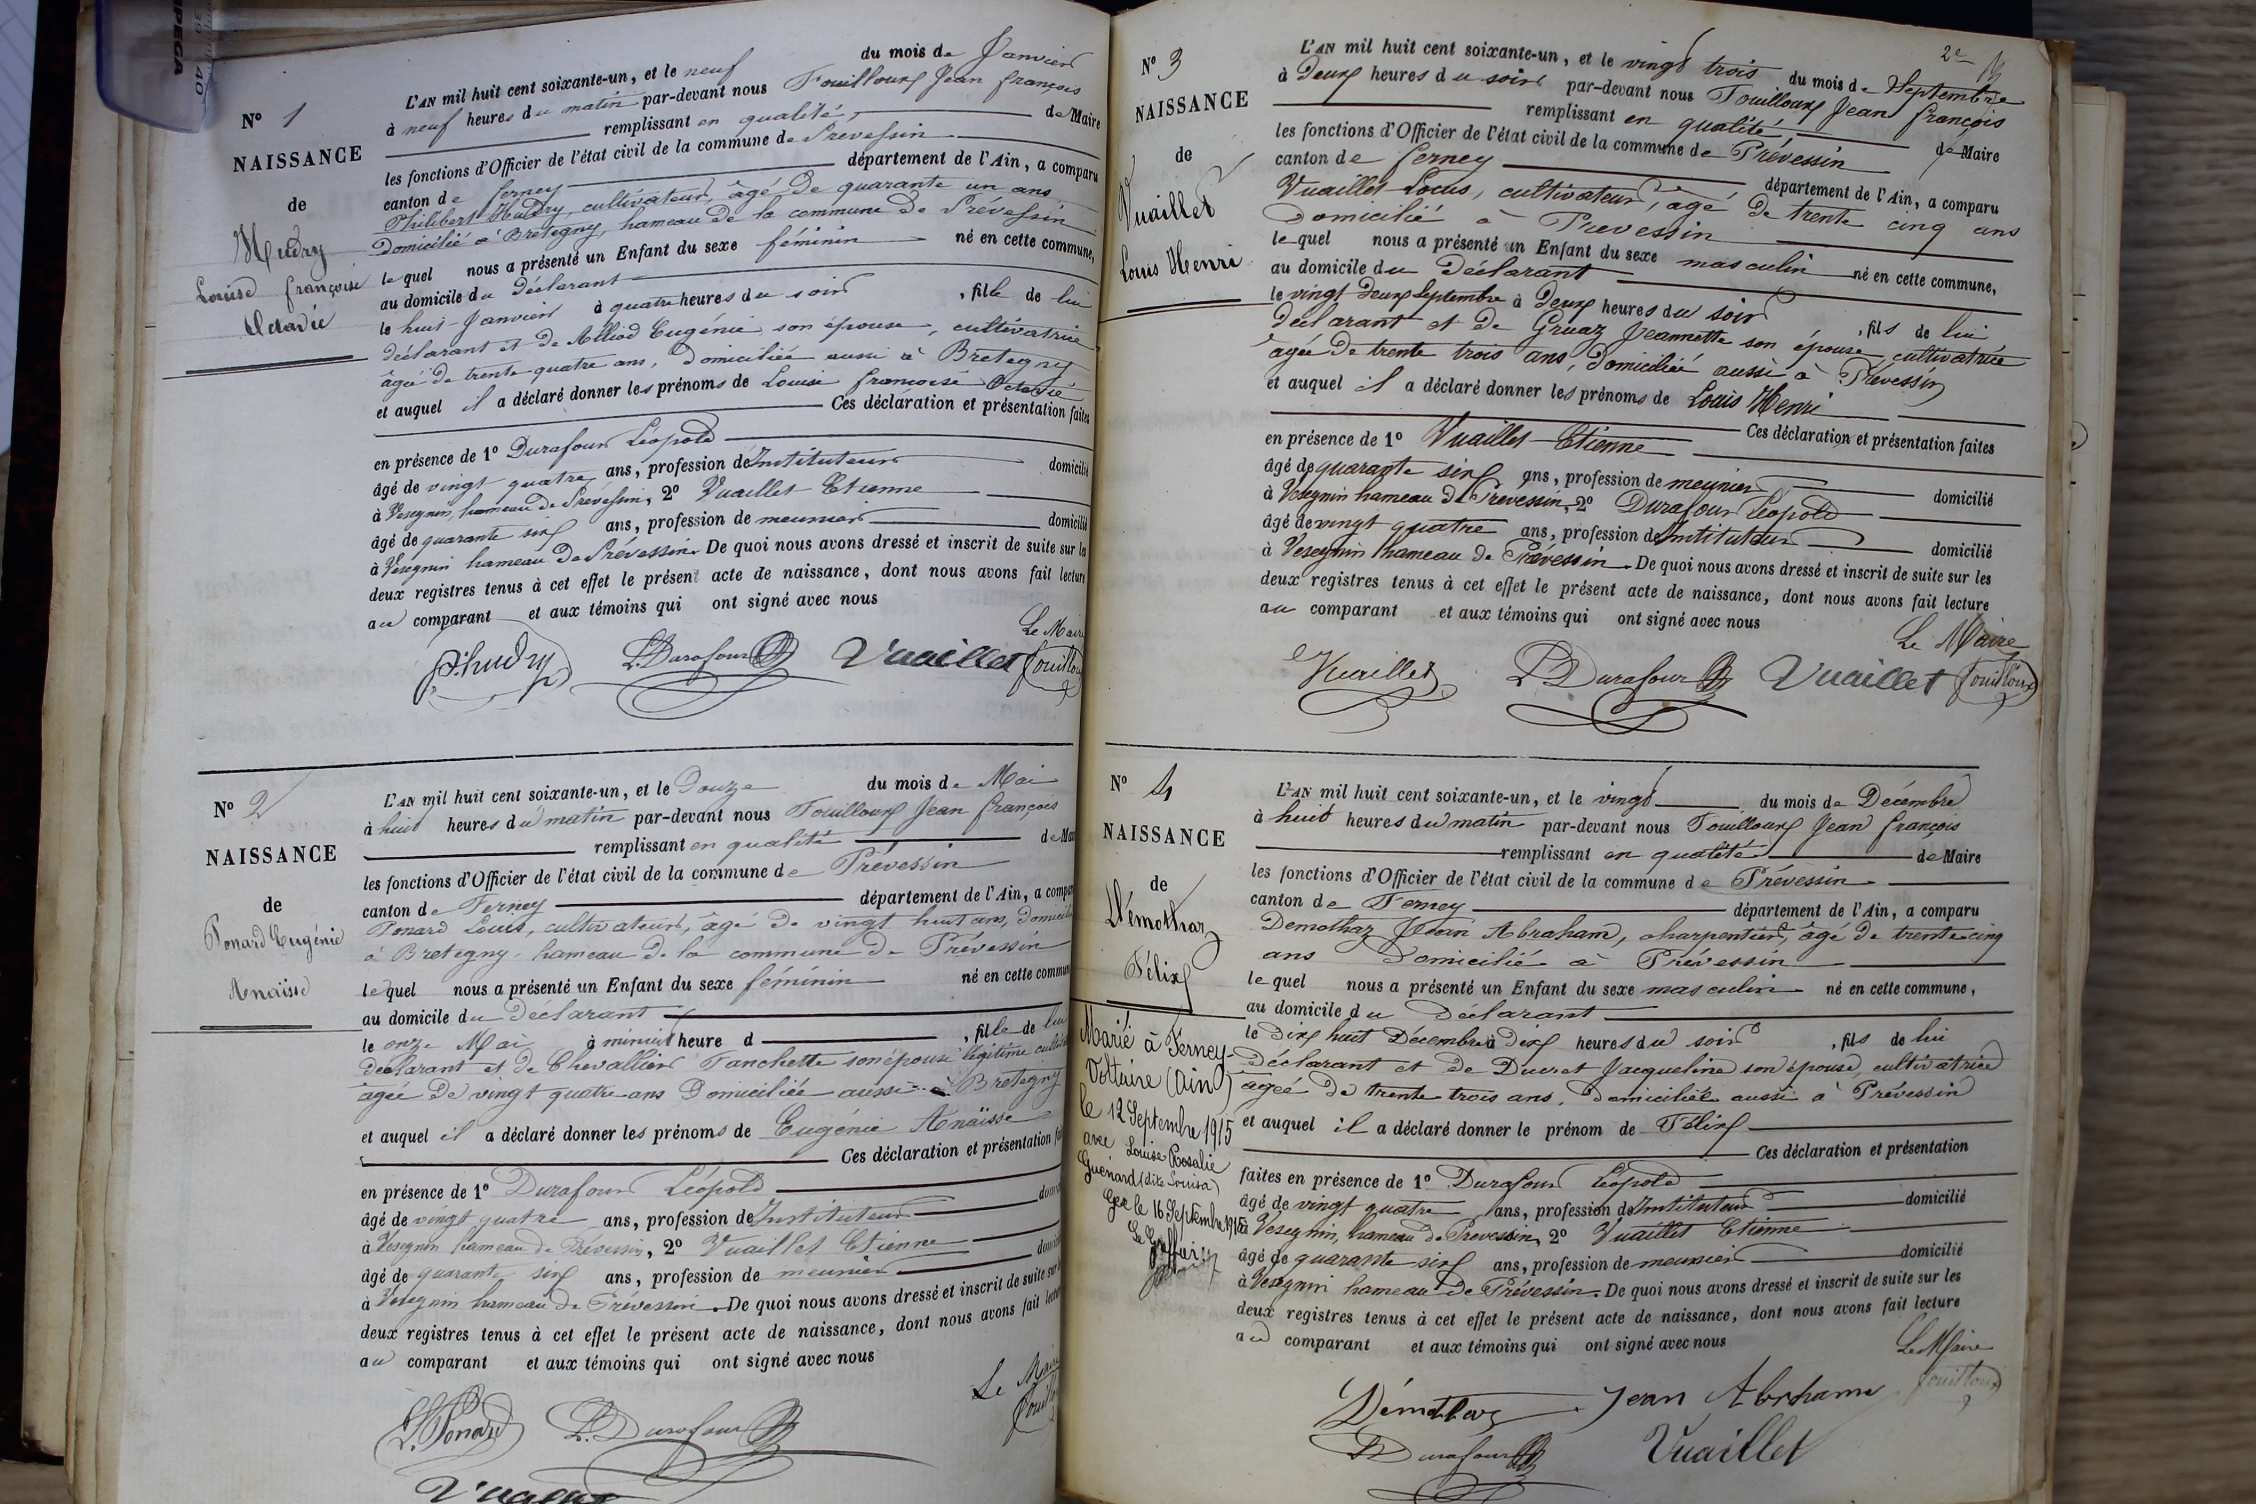 N° 1
NAISSANCE
de
Hudry
Louise françoise
Octavie
L'AN mil huit cent soixante-un, et le neuf du mois de Janvier
à neuf heures du matin par-devant nous Fouilloux Jean françois
remplissant en qualité, de Maire
les fonctions d'Officier de l'état civil de la commune de Prevessin
canton de ferney département de l'Ain, a comparu
Philibert Hudry, cultivateur, âgé de quarante un ans
Domicilié à Bretegny, hameau de la commune de Prévessin
lequel nous a présenté un Enfant du sexe féminin né en cette commune,
au domicile du déclarant
le huit Janvier à quatre heures du soir, fille de lui
déclarant et de Alliod Eugénie son épouse, cultivatrice
âgée de trente quatre ans, domiciliée aussi à Bretegny
et auquel il a déclaré donner les prénoms de Louise françoise Octavie
Ces déclaration et présentation faites
en présence de 1° Durafour Léopold
âgé de vingt quatre ans, profession de Instituteur domicilié
à Vesegnin, hameau de Prévessin, 2° Vuaillet Etienne
âgé de quarante six ans, profession de meunier domicilié
à Vesegnin hameau de Prévessin. De quoi nous avons dressé et inscrit de suite sur les
deux registres tenus à cet effet le présent acte de naissance, dont nous avons fait lecture
au comparant et aux témoins qui ont signé avec nous
Le Maire
Ph hudry L. Durafour Vuaillet fouilloux
N° 2
NAISSANCE
de
Ponard Eugénie
Anaïsse
L'AN mil huit cent soixante-un, et le Douze du mois de Mai
à huit heures du matin par-devant nous Fouilloux Jean françois
remplissant en qualité de Mai
les fonctions d'Officier de l'état civil de la commune de Prévessin
canton de Ferney département de l'Ain, a compar
Ponard Louis, cultivateur, âgé de vingt huit ans, domicilié
à Bretegny, hameau de la commune de Prévessin
lequel nous a présenté un Enfant du sexe féminin né en cette commun
au domicile du déclarant
le onze Mai à minuit heure d , fille de lui
déclarant et de Chevallier Fanchette son épouse légitime
âgée de vingt quatre ans Domiciliée aussi à Bretegny
et auquel il a déclaré donner les prénoms de Eugénie Anaïsse
Ces déclaration et présentation fai
en présence de 1° Durafour Léopold
âgé de vingt quatre ans, profession de Instituteur domi
à Vesegnin hameau de Prévessin, 2° Vuaillet Etienne
âgé de quarante six ans, profession de meunier domi
à Vesegnin hameau de Prévessin. De quoi nous avons dressé et inscrit de suite sur
deux registres tenus à cet effet le présent acte de naissance, dont nous avons fait lectu
au comparant et aux témoins qui ont signé avec nous
Le Maire
L. Ponard L. Durafour fouillo
Vuaillet
2e
N° 3
NAISSANCE
de
Vuaillet
Louis Henri
L'AN mil huit cent soixante-un, et le vingt trois du mois de Septembre
à Deux heures du soir par-devant nous Fouilloux Jean françois
remplissant en qualité, de Maire
les fonctions d'Officier de l'état civil de la commune de Prévessin
canton de ferney département de l'Ain, a comparu
Vuaillet Locus, cultivateur, âgé de trente cinq ans
Domicilié à Prevessin
lequel nous a présenté un Enfant du sexe masculin né en cette commune,
au domicile du Déclarant
le vingt deux Septembre à Deux heures du soir, fils de lui
déclarant et de Gruaz Jeannette son épouse, cultivatrice
âgée de trente trois ans, domiciliée aussi à Prévessin
et auquel il a déclaré donner les prénoms de Louis Henri
Ces déclaration et présentation faites
en présence de 1° Vuaillet Etienne
âgé de quarante six ans, profession de meunier domicilié
à Vesegnin hameau de Prévessin, 2° Durafour Léopold
âgé de vingt quatre ans, profession de Instituteur domicilié
à Vesegnin hameau de Prévessin. De quoi nous avons dressé et inscrit de suite sur les
deux registres tenus à cet effet le présent acte de naissance, dont nous avons fait lecture
au comparant et aux témoins qui ont signé avec nous
Le Maire
Vuaillet L. Durafour Vuaillet fouilloux
N° 4
NAISSANCE
de
Démothaz
Félix
Marié à Ferney-
Voltaire (Ain)
le 12 Septembre 1915
avec Louise Rosalie
Guénard (dite Louisa)
Gex le 16 Septembre 1915
Le Greffier
L'AN mil huit cent soixante-un, et le vingt du mois de Décembre
à huit heures du matin par-devant nous Fouilloux Jean françois
remplissant en qualité de Maire
les fonctions d'Officier de l'état civil de la commune de Prévessin
canton de Ferney département de l'Ain, a comparu
Demothaz Jean Abraham, charpentier, âgé de trente cinq
ans Domicilié à Prévessin
lequel nous a présenté un Enfant du sexe masculin né en cette commune,
au domicile du Déclarant
le Dix huit Décembre à dix heures du soir, fils de lui
déclarant et de Ducret Jacqueline son épouse, cultivatrice
âgée de trente trois ans, domiciliée aussi à Prévessin
et auquel il a déclaré donner le prénom de Félix
Ces déclaration et présentation
faites en présence de 1° Durafour Léopold
âgé de vingt quatre ans, profession de Instituteur domicilié
à Vesegnin, hameau de Prevessin, 2° Vuaillet Etienne
âgé de quarante six ans, profession de meunier domicilié
à Vesegnin hameau de Prévessin. De quoi nous avons dressé et inscrit de suite sur les
deux registres tenus à cet effet le présent acte de naissance, dont nous avons fait lecture
au comparant et aux témoins qui ont signé avec nous
Le Maire
Démothaz Jean Abraham fouilloux
L. Durafour Vuaillet